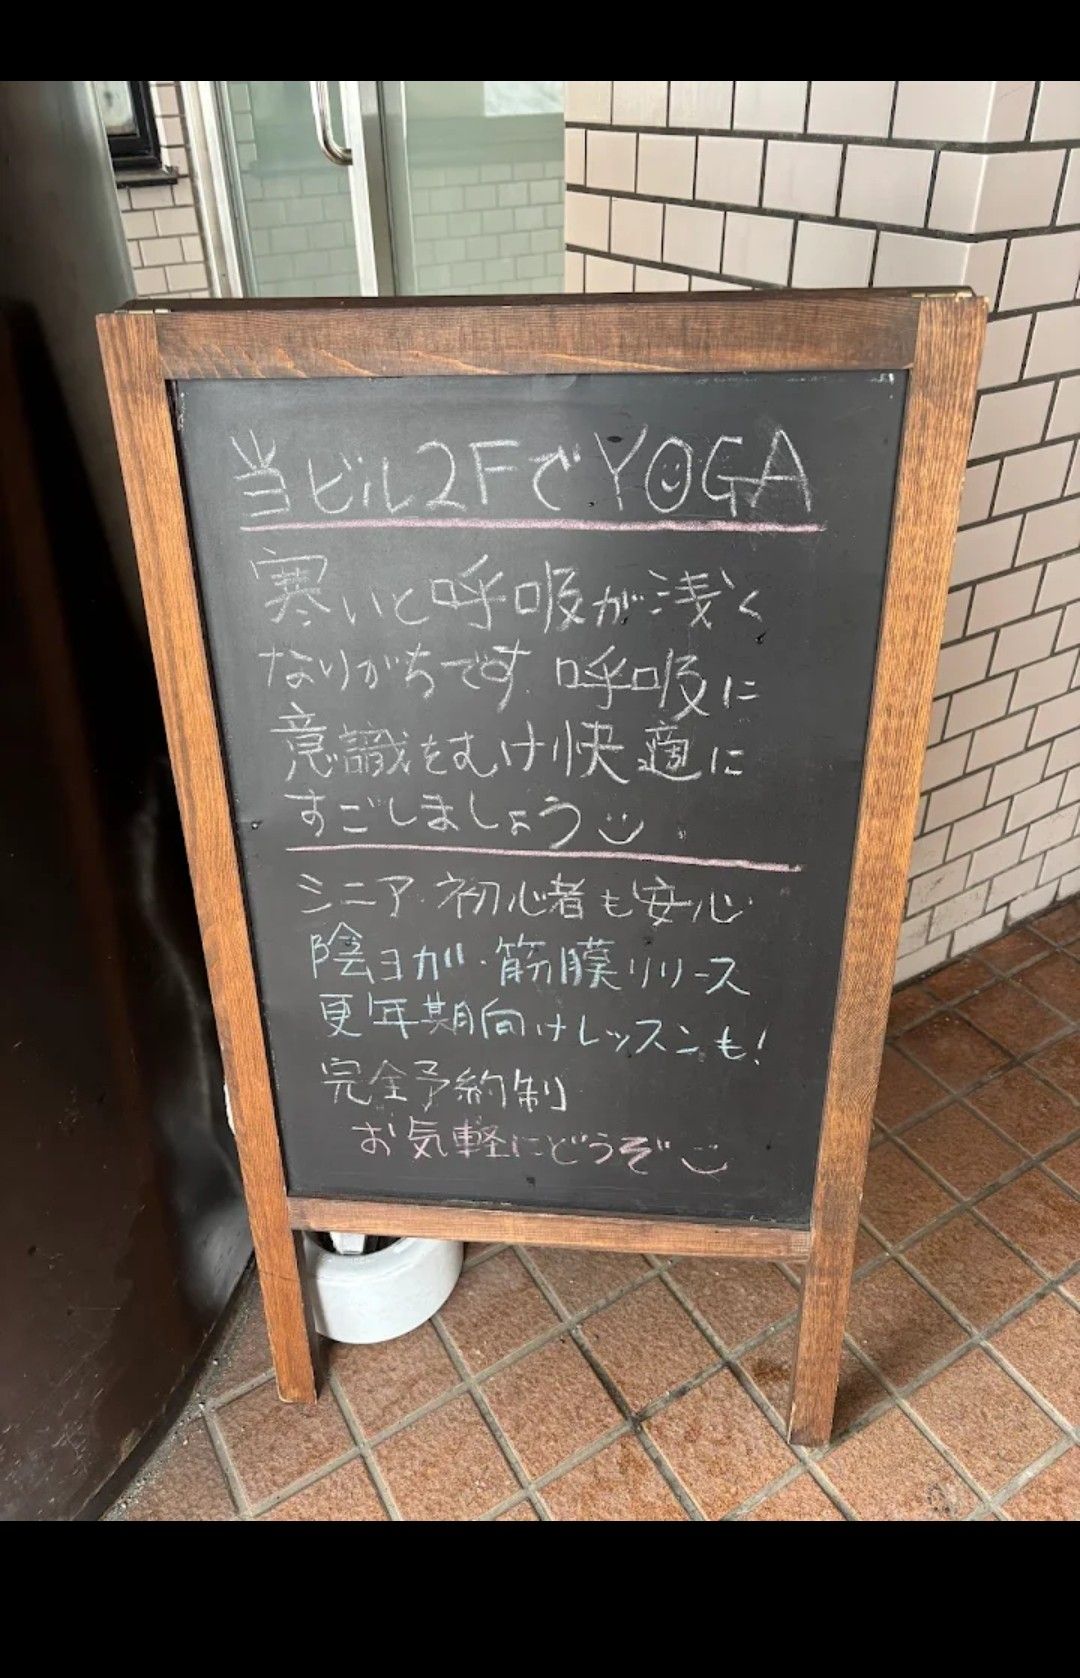 当ビル2FでYOGA
寒いと呼吸が浅く
なりがちです。呼吸に
意識をむけ快適に
すごしましょう
シニア・初心者も安心
陰ヨガ・筋膜リリース
更年期向けレッスンも!
完全予約制
お気軽にどうぞ